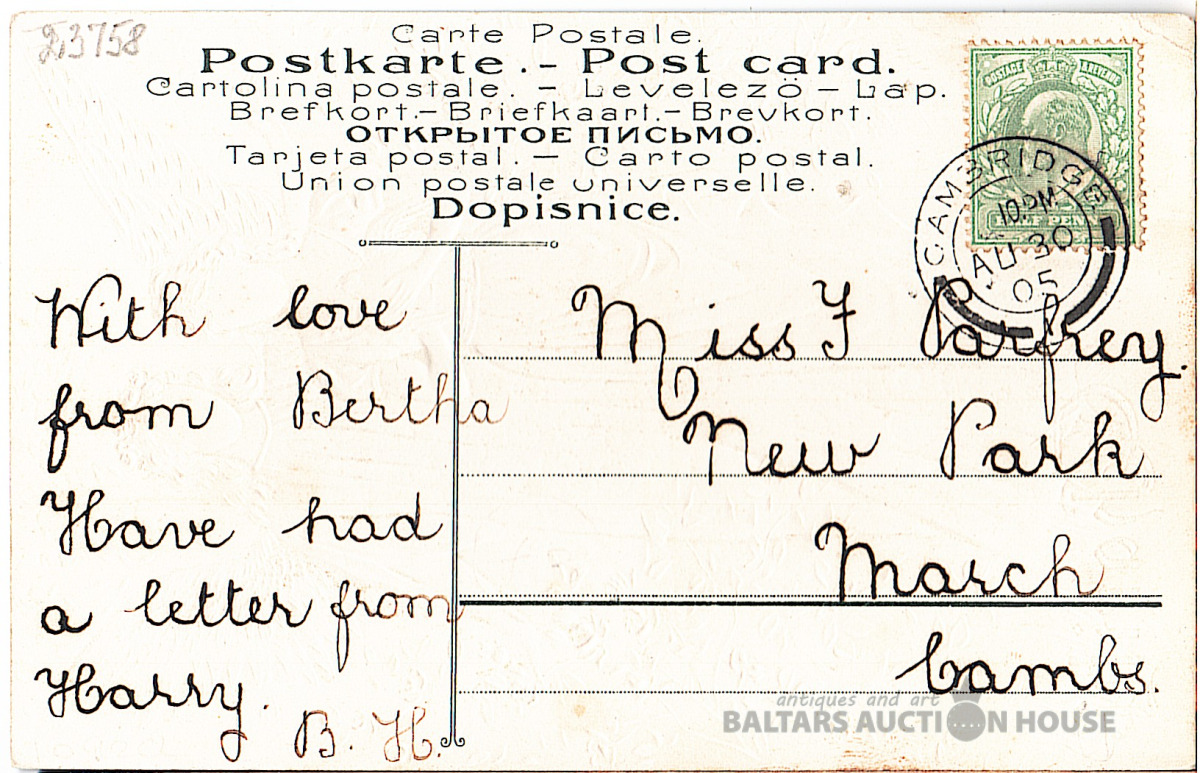 2,3758
Carte Postale.
Postkarte. - Post card.
Cartolina postale. - Levelezö - Lap.
Brefkort. - Briefkaart. - Brevkort.
ОТКРЫТОЕ ПИСЬМО.
Tarjeta postal. - Carto postal.
Union postale universelle.
Dopisnice.
POSTAGE REVENUE
HALFPENNY
CAMBRIDGE
10.PM
AU 30
05
With love
from Bertha
Have had
a letter from
Harry.
B. H.
Miss F Parfrey.
New Park
March
Cambs.
antiques and art
BALTARS AUCTION HOUSE